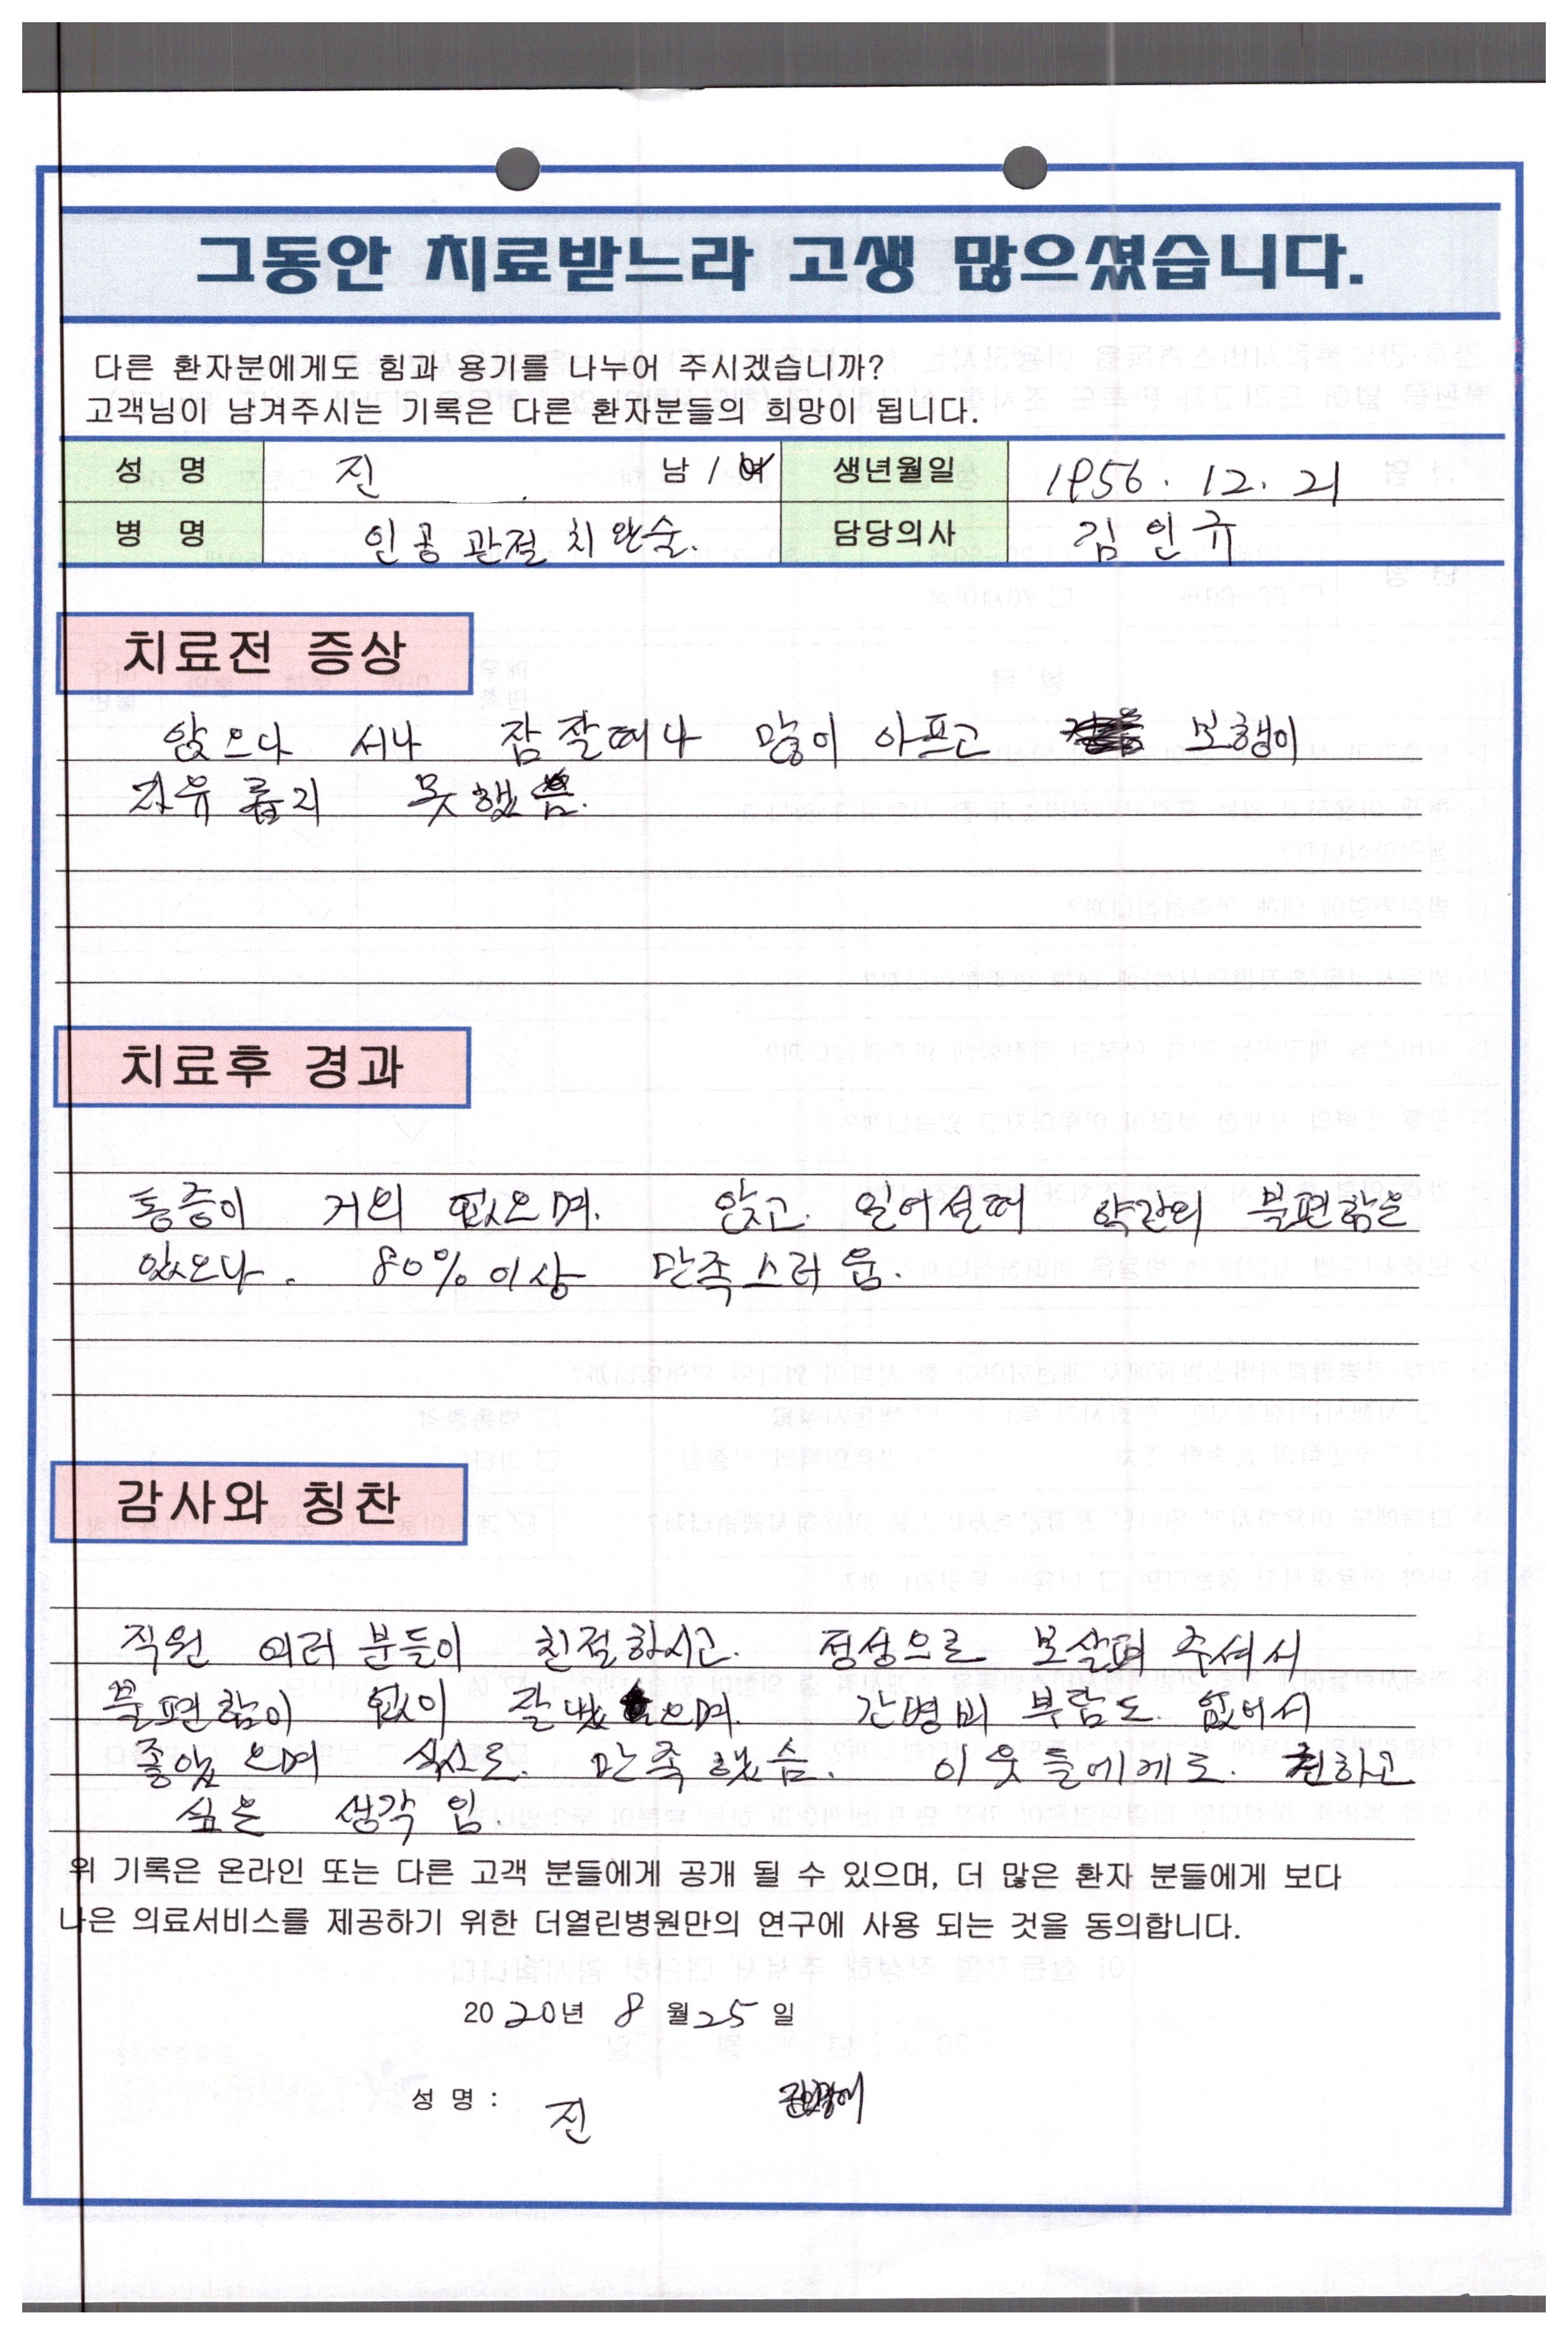 그동안 치료받느라 고생 많으셨습니다.
다른 환자분에게도 힘과 용기를 나누어 주시겠습니까?
고객님이 남겨주시는 기록은 다른 환자분들의 희망이 됩니다.
성 명 진 남 / 여 생년월일 1956. 12. 21
병 명 인공관절 치환술. 담당의사 김인규
치료전 증상
앉으나 서나 잠잘때나 많이 아프고 보행이
자유롭지 못했음.
치료후 경과
통증이 거의 없으며. 앉고. 일어설때 약간의 불편함은
있으나. 80% 이상 만족스러움.
감사와 칭찬
직원 여러분들이 친절하시고. 정성으로 보살펴 주셔서
불편함이 없이 잘 있으며. 간병비 부담도. 없어서
좋았으며 식사도. 만족했슴. 이웃들에게도. 권하고
싶은 생각임.
위 기록은 온라인 또는 다른 고객 분들에게 공개 될 수 있으며, 더 많은 환자 분들에게 보다
나은 의료서비스를 제공하기 위한 더열린병원만의 연구에 사용 되는 것을 동의합니다.
2020년 8월 25일
성 명 : 진